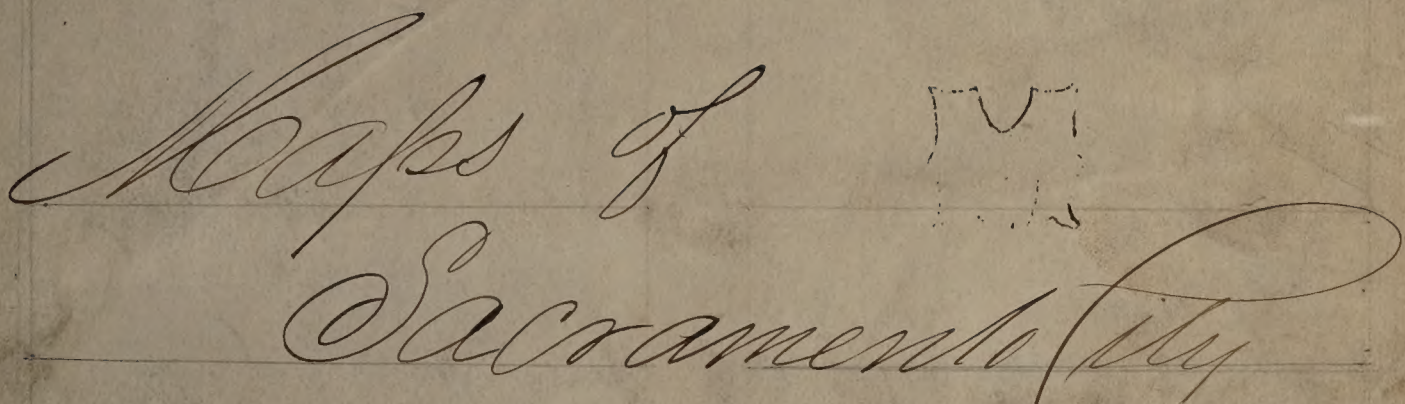 Maps of
Sacramento City